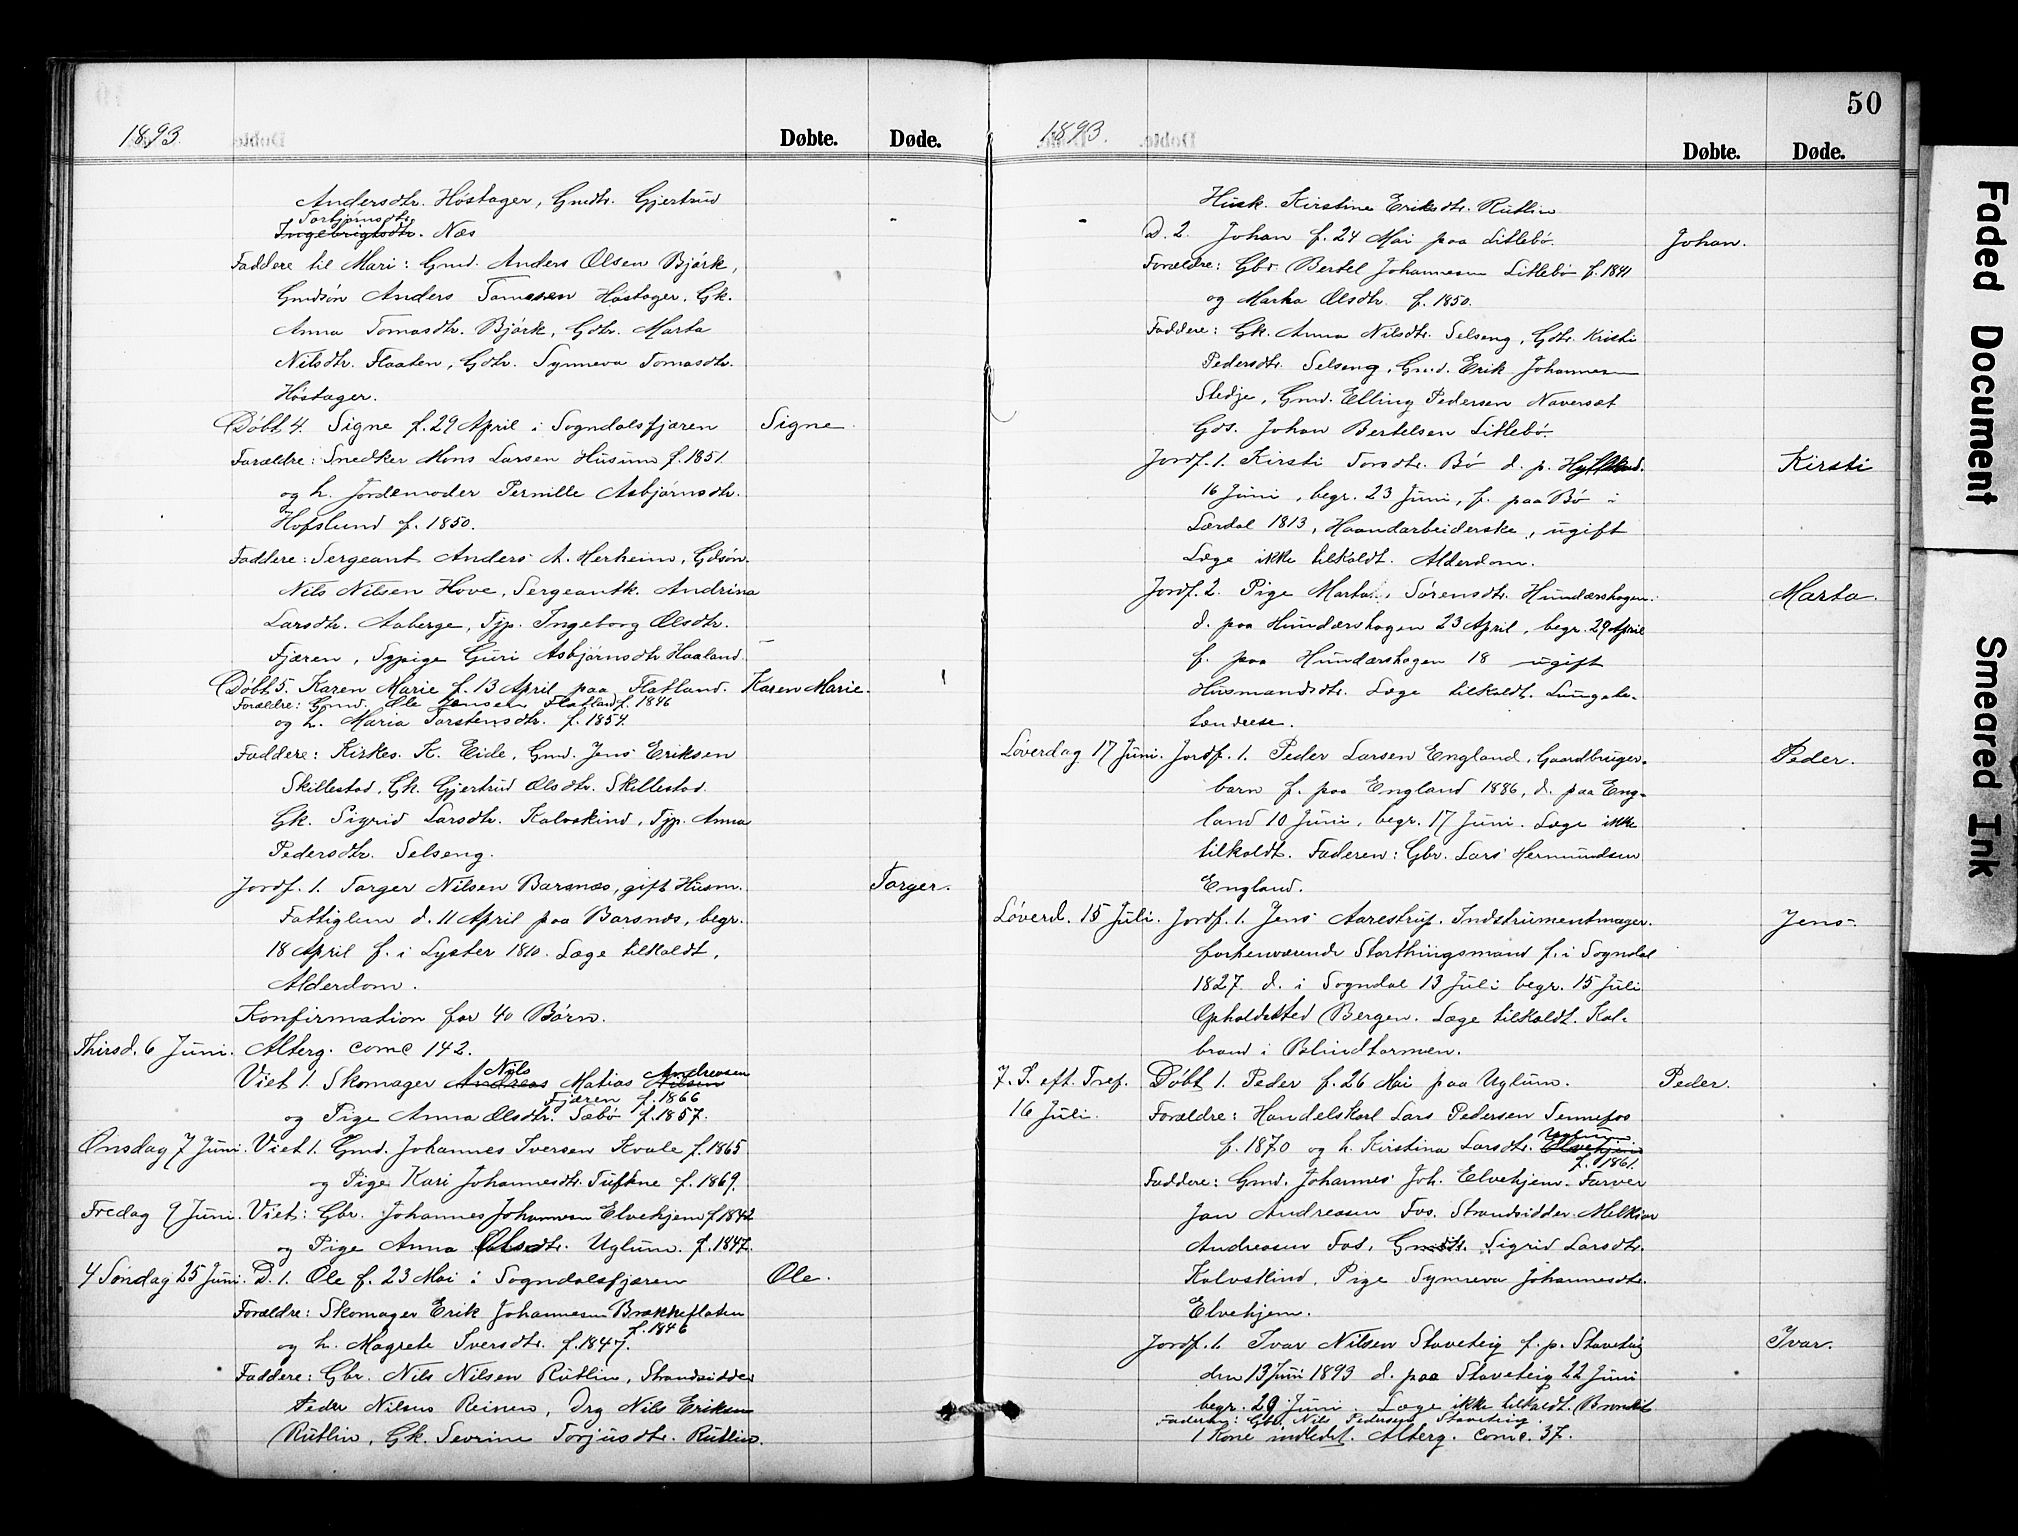 1893.
Døbte.
Døde.
Andersdtr. Høstager, Gmdtr. Gjertrud
Torbjørnsdtr.
Ingebrigtsdtr. Næs
Faddere til Mari: Gmd. Anders Olsen Bjørk,
Gmdsøn Anders Tomasen Høstager, Gk.
Anna Tomasdtr. Bjørk, Gdtr. Marta
Nilsdtr. Flaaten, Gdtr. Synneva Tomasdtr.
Høstager.
Døbt 4. Signe f. 29 April i Sogndalsfjæren
Signe.
Forældre: Snedker Mons Larsen Husum f. 1851.
og h. Jordemoder Pernille Asbjørnsdtr.
Hofslund f. 1850.
Faddere: Sergeant Anders A. Herheim, Gdsøn.
Nils Nilsen Hove, Sergeantk. Andrina
Larsdtr. Aaberge, Tjp. Ingeborg Olsdtr.
Fjæren, Sypige Guri Asbjørnsdtr Haaland.
Døbt 5. Karen Marie f. 13 April paa Flatland.
Karen Marie.
Forældre: Gmd. Ole Jensen Flatland f. 1846
og h. Maria Torstensdtr. f. 1854.
Faddere: Kirkes. K. Eide, Gmd. Jens Eriksen
Skillestad, Gk. Gjertrud Olsdtr. Skillestad.
Gk. Sigrid Larsdtr. Kalvskind, Tjp. Anna
Pedersdtr. Selseng.
Jordf. 1. Torger Nilsen Barsnæs, gift Husm.
Torger.
Fattiglem d. 11 April paa Barsnæs, begr.
18 April f. i Lyster 1810. Læge tilkaldt,
Alderdom.
Konfirmation for 40 Børn.
Thirsd. 6 Juni. Alterg. come 142.
Nils Andreasen
Viet 1. Skomager Andreas Matias Nilsen
Fjæren f. 1866
og Pige Anna Olsdtr. Sæbø f. 1857.
Onsdag 7 Juni. Viet 1. Gmd. Johannes Iversen Kvale f. 1865
og Pige Kari Johannesdtr. Tufkne f. 1869.
Fredag 9 Juni. Viet: Gbr. Johannes Johannesen Elvehjem f 1842
og Pige Anna Olsdtr. Uglum. f. 1847.
4 Søndag 25 Juni. D. 1. Ole f. 23 Mai i Sogndalsfjæren
Ole.
Forældre: Skomager Erik Johannesen Brækkeflaten
f. 1846
og h. Magrete Iversdtr. f. 1847.
Faddere: Gbr. Nils Nilsen Rutlin, Strandsidder
Peder Nilsen Reinen, Drg Nils Eriksen
Rutlin, Gk. Severine Torjusdtr. Rutlin.
50
1893.
Døbte.
Døde.
Husk. Kirstine Eriksdtr. Rutlin
D. 2. Johan f. 24 Mai paa Litlebø.
Johan.
Forældre: Gbr Bertel Johannesen Litlebø f. 1841
og Marta Olsdtr. f. 1850.
Faddere: Gk. Anna Nilsdtr. Selseng, Gdtr. Kristi
Pedersdtr. Selseng, Gmd. Erik Johannesen
Stedje, Gmd. Elling Pedersen Navarsæt
Gds. Johan Bertelsen Litlebø.
Jordf. 1. Kirsti Torsdtr. Bø d. p.
Kirsti
16 Juni, begr. 23 Juni, f. paa Bø i
Lærdal 1813, Haandarbeiderske, ugift
Læge ikke tilkaldt. Alderdom.
Jordf. 2. Pige Marta Sørensdtr. Hundershagen.
Marta.
d. paa Hundershagen 23 April, begr. 29 April
f. paa Hundershagen 18 ugift
Husmandsdtr. Læge tilkaldt. Lungebe-
tændelse.
Løverdag 17 Juni. Jordf. 1. Peder Larsen England, Gaardbruger-
Peder.
barn f. paa England 1886, d. paa Eng-
land 10 Juni, begr. 17 Juni. Læge ikke
tilkaldt. Faderen: Gbr. Lars Hermundsen
England.
Løverd. 15 Juli. Jordf. 1. Jens Aarestrup. Indstrumentmager.
Jens
forhenværende Storthingsmand f. i Sogndal
1827 d. i Sogndal 13 Juli begr. 15 Juli
Opholdssted Bergen. Læge tilkaldt. Kol-
brand i Blindtarmen.
7. S. eft. Tref. Døbt 1. Peder f. 26 Mai paa Uglum.
Peder.
16 Juli. Forældre: Handelskarl Lars Pedersen Sennefos
Uglum
f. 1870 og h. Kirstina Larsdtr. Elvehjem
f. 1861.
Faddere: Gmd. Johannes Joh. Elvehjem. Farver
Jan Andreasen Fos. Strandsidder Melkior
Andreasen Fos, Gmdtr. Sigrid Larsdtr.
Kalvskind, Pige Synneva Johannesdtr.
Elvehjem.
Jordf. 1. Ivar Nilsen Staveteig f. p. Staveteig
Ivar.
den 13 Juni 1893 d. paa Staveteig 22 Juni
begr. 29 Juni. Læge ikke tilkaldt.
Faderen: Gbr. Nils Pedersen Staveteig.
1 Kone indledet. Alterg. come. 37.
Faded Document
Smeared Ink